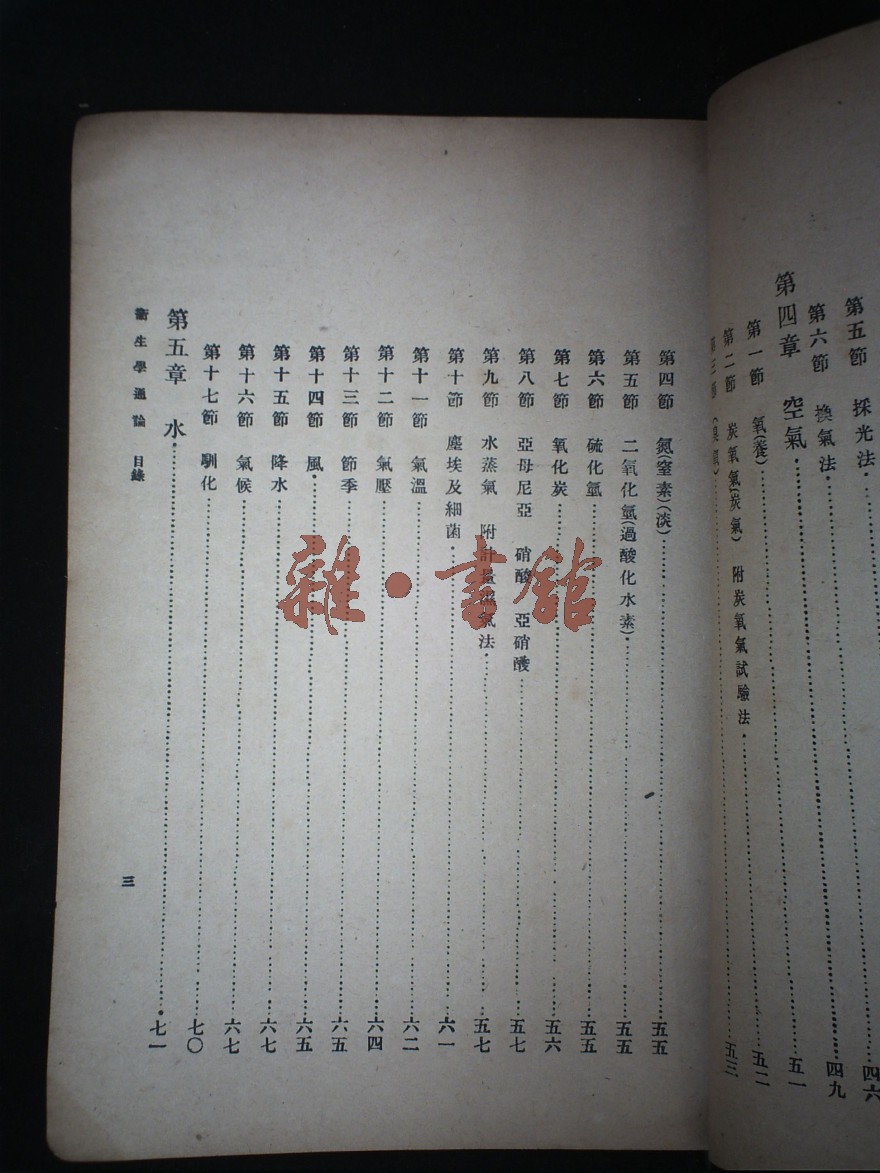 第五節 採光法 四六
第六節 換氣法 四九
第四章 空氣 五一
第一節 氧(養) 五二
第二節 炭氧氣(炭氣) 附炭氧氣試驗法 五三
第四節 氮(窒素)(淡) 五五
第五節 二氧化氫(過酸化水素) 五五
第六節 硫化氫 五五
第七節 氧化炭 五六
第八節 亞母尼亞 硝酸 亞硝酸 五七
第九節 水蒸氣 附計量濕氣法 五七
第十節 塵埃及細菌 六一
第十一節 氣溫 六二
第十二節 氣壓 六四
第十三節 節季 六五
第十四節 風 六五
第十五節 降水 六七
第十六節 氣候 六七
第十七節 馴化 七〇
第五章 水 七一
衞生學通論 目錄
三
雜·書館